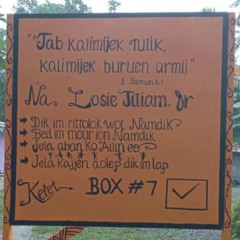 "Jab kalimijek nutik,
kalimijek buruen armij"
1 Samuel 16:7
Na, Losie Tuiam, Jr
Dik im rittolok wot Namdik
Bed im mour ion Namdik
Jela aban ko Ailin eo
Jela kajjen aolep dik im lap
BOX #7